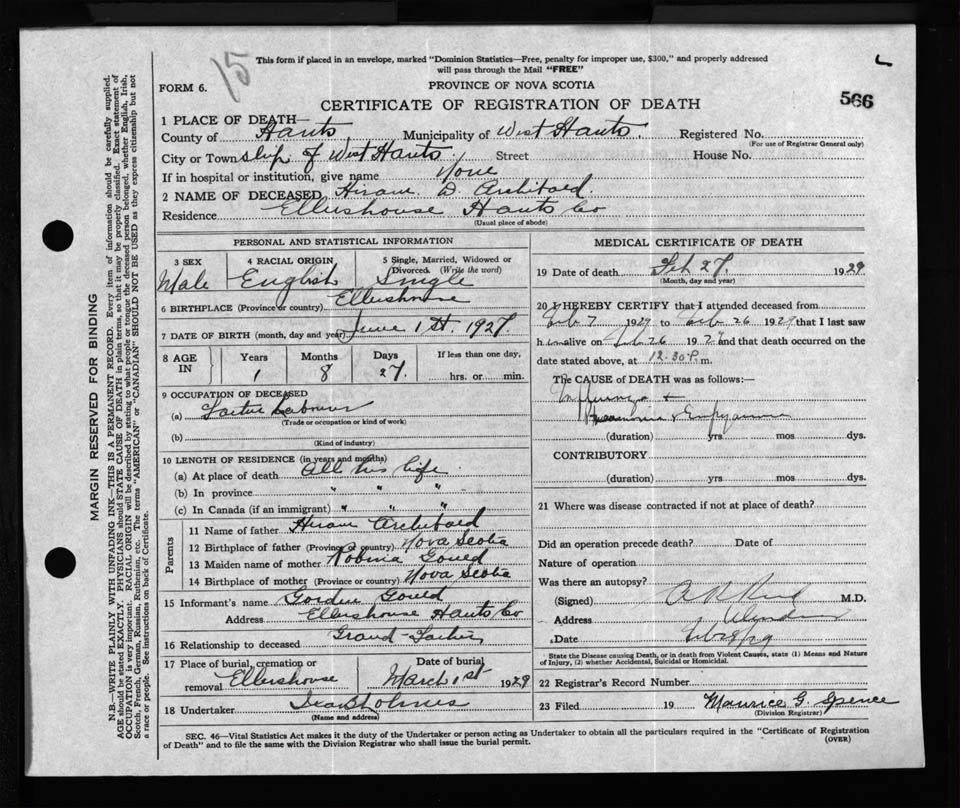 15
This form if placed in an envelope, marked "Dominion Statistics—Free, penalty for improper use, $300," and properly addressed
will pass through the Mail "FREE"
FORM 6.
PROVINCE OF NOVA SCOTIA
566
CERTIFICATE OF REGISTRATION OF DEATH
1 PLACE OF DEATH—
County of Hants, Municipality of West Hants, Registered No.
(For use of Registrar General only)
City or Township of West Hants Street House No.
If in hospital or institution, give name None
2 NAME OF DECEASED Hiram D. Archibald.
Residence Ellershouse Hants Co
(Usual place of abode)
PERSONAL AND STATISTICAL INFORMATION
3 SEX 4 RACIAL ORIGIN 5 Single, Married, Widowed or
Divorced. (Write the word)
Male English Single
6 BIRTHPLACE (Province or country) Ellershouse
7 DATE OF BIRTH (month, day and year) June 1st. 1927.
8 AGE IN Years Months Days If less than one day,
1 8 27. hrs. or min.
9 OCCUPATION OF DECEASED
(a) Labourer
(Trade or occupation or kind of work)
(b)
(Kind of industry)
10 LENGTH OF RESIDENCE (in years and months)
(a) At place of death All his life
(b) In province " " "
(c) In Canada (if an immigrant) " " "
Parents
11 Name of father Hiram Archibald
12 Birthplace of father (Province or country) Nova Scotia
13 Maiden name of mother Gould
14 Birthplace of mother (Province or country) Nova Scotia
15 Informant's name Gorden Gould
Address Ellershouse Hants Co
16 Relationship to deceased Grand-Father
17 Place of burial, cremation or Date of burial
removal Ellershouse March 1st 1929
18 Undertaker Holmes
(Name and address)
MEDICAL CERTIFICATE OF DEATH
19 Date of death Feb 27. 1929
(Month, day and year)
20 I HEREBY CERTIFY that I attended deceased from
Feb 7 1929 to Feb 26 1929 that I last saw
him alive on Feb 26 192 and that death occurred on the
date stated above, at 12.30 P.m.
The CAUSE OF DEATH was as follows:—
Influenza +
Pneumonia & Empyaema
(duration) yrs mos dys.
CONTRIBUTORY
(duration) yrs. mos. dys.
21 Where was disease contracted if not at place of death?
Did an operation precede death? Date of
Nature of operation
Was there an autopsy?
(Signed) M.D.
Address Windsor
Date
State the Disease causing Death, or in death from Violent Causes, state (1) Means and Nature
of Injury, (2) whether Accidental, Suicidal or Homicidal.
22 Registrar's Record Number
23 Filed 19 Maurice G. Spence
(Division Registrar)
SEC. 46—Vital Statistics Act makes it the duty of the Undertaker or person acting as Undertaker to obtain all the particulars required in the "Certificate of Registration
of Death" and to file the same with the Division Registrar who shall issue the burial permit.
(OVER)
MARGIN RESERVED FOR BINDING
N.B.—WRITE PLAINLY WITH UNFADING INK—THIS IS A PERMANENT RECORD. Every item of information should be carefully supplied.
AGE should be stated EXACTLY. PHYSICIANS should STATE CAUSE OF DEATH in plain terms, so that it may be properly classified. Exact statement of
OCCUPATION is very important. RACIAL ORIGIN will be described by stating to what people or tongue the deceased person belonged, whether English, Irish,
Scotch, French, German, Russian, Ruthenian, etc. The terms "AMERICAN" or "CANADIAN" SHOULD NOT BE USED as they express citizenship but not
a race or people. See instructions on back of Certificate.